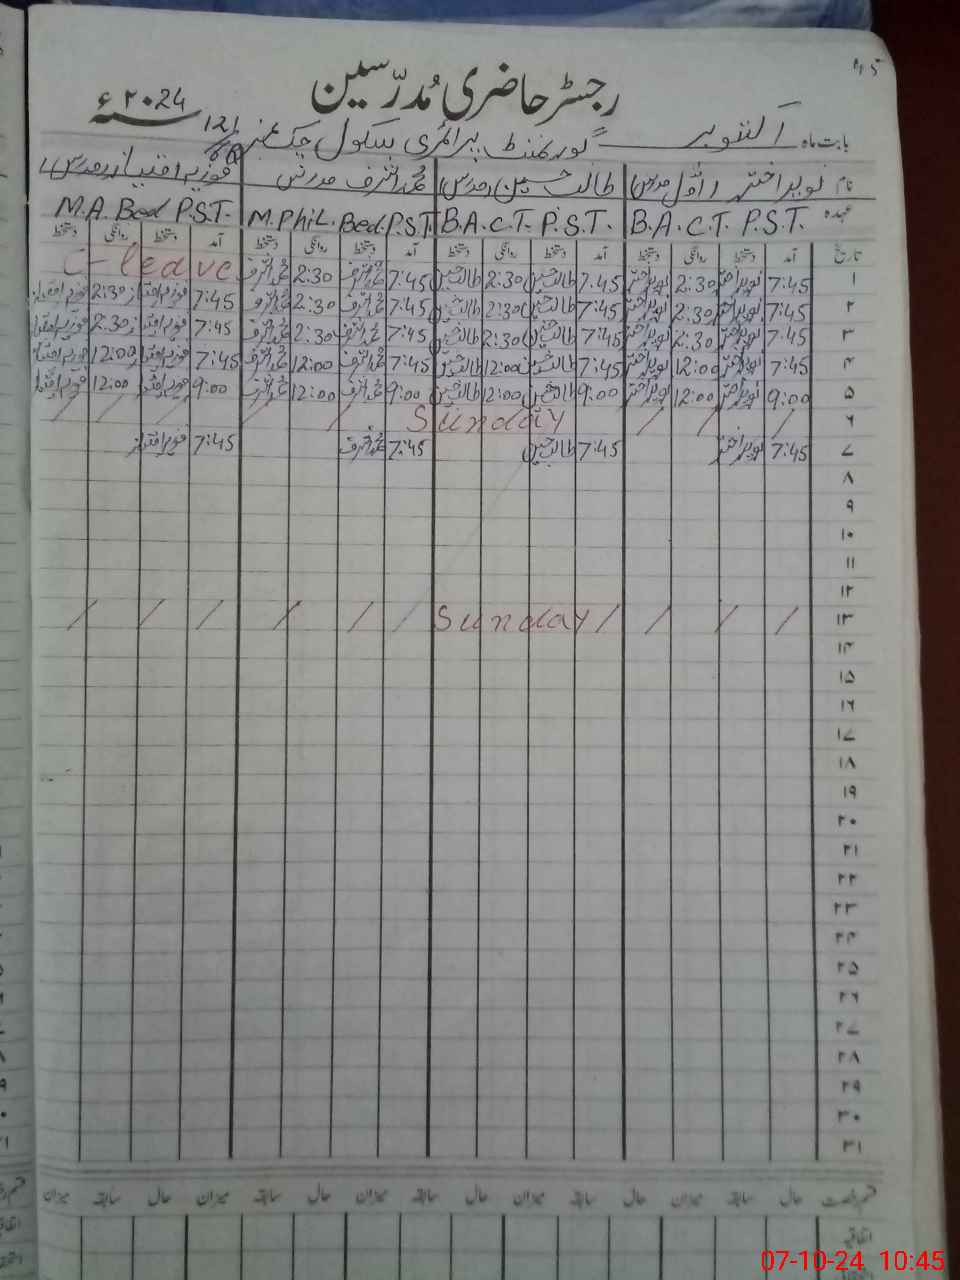 ۴۵
رجسٹر حاضری مُدرّسین
بابت ماہ اکتوبر گورنمنٹ پرائمری سکول چک نمبر 121 سنہ ۲۰24ء
نام نویر اختر (اوّل مدرس) طالب حسین (مدرس) محمد اشرف مدرس فوزیہ امتیاز (مدرس)
عہدہ B.A.C.T. P.S.T. B.A.C.T. P.S.T. M.Phil. Bed. P.S.T. M.A. Bed P.S.T.
تاریخ آمد دستخط روانگی دستخط آمد دستخط روانگی دستخط آمد دستخط روانگی دستخط آمد دستخط روانگی دستخط
۱ 7:45 نویر اختر 2:30 نویر اختر 7:45 طالب حسین 2:30 طالب حسین 7:45 محمد اشرف 2:30 محمد اشرف C-leave
۲ 7:45 نویر اختر 2:30 نویر اختر 7:45 طالب حسین 2:30 طالب حسین 7:45 محمد اشرف 2:30 محمد اشرف 7:45 فوزیہ امتیاز 2:30 فوزیہ امتیاز
۳ 7:45 نویر اختر 2:30 نویر اختر 7:45 طالب حسین 2:30 طالب حسین 7:45 محمد اشرف 2:30 محمد اشرف 7:45 فوزیہ امتیاز 2:30 فوزیہ امتیاز
۴ 7:45 نویر اختر 12:00 نویر اختر 7:45 طالب حسین 12:00 طالب حسین 7:45 محمد اشرف 12:00 محمد اشرف 7:45 فوزیہ امتیاز 12:00 فوزیہ امتیاز
۵ 9:00 نویر اختر 12:00 نویر اختر 9:00 طالب حسین 12:00 طالب حسین 9:00 محمد اشرف 12:00 محمد اشرف 9:00 فوزیہ امتیاز 12:00 فوزیہ امتیاز
۶ / / / Sunday / / / / /
۷ 7:45 نویر اختر 7:45 طالب حسین 7:45 محمد اشرف 7:45 فوزیہ امتیاز
۸
۹
۱۰
۱۱
۱۲
۱۳ / / / / Sunday / / / / / /
۱۴
۱۵
۱۶
۱۷
۱۸
۱۹
۲۰
۲۱
۲۲
۲۳
۲۴
۲۵
۲۶
۲۷
۲۸
۲۹
۳۰
۳۱
قسم رخصت حال سابقہ میزان حال سابقہ میزان حال سابقہ میزان حال سابقہ میزان حال سابقہ میزان
اتفاقیہ
07-10-24 10:45